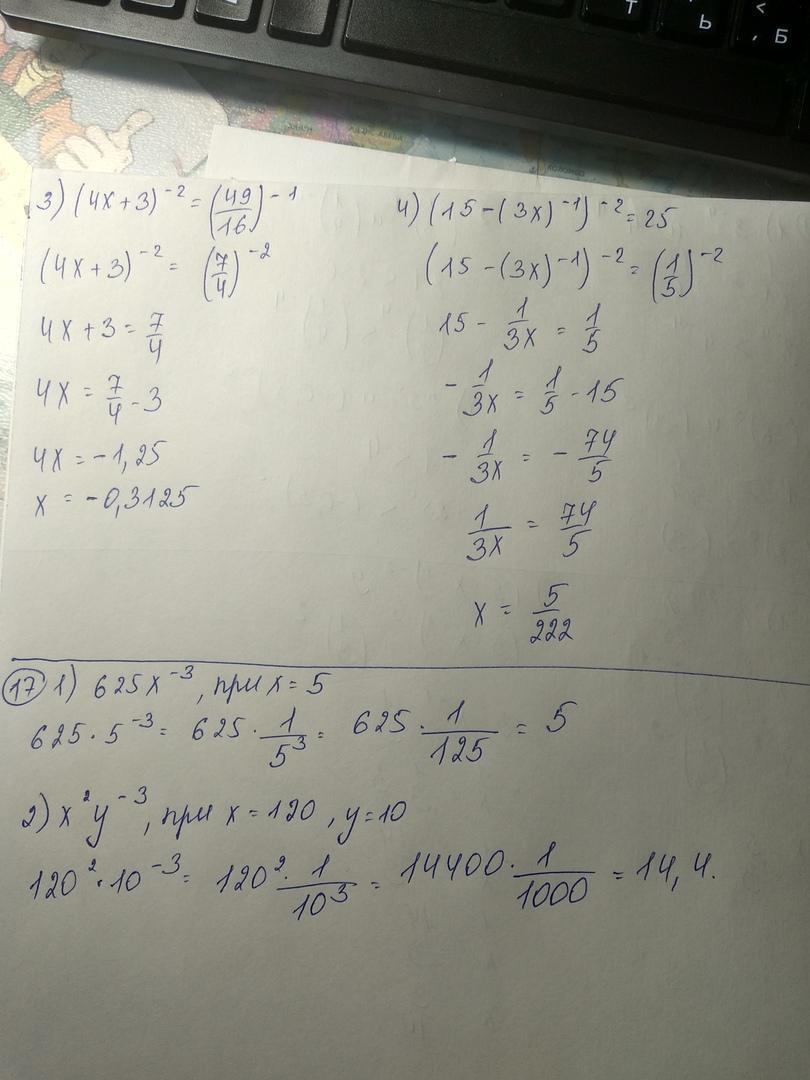 3) (4x+3)^-2 = (49/16)^-1
(4x+3)^-2 = (7/4)^-2
4x+3 = 7/4
4x = 7/4 - 3
4x = -1,25
x = -0,3125
4) (15-(3x)^-1)^-2 = 25
(15-(3x)^-1)^-2 = (1/5)^-2
15 - 1/3x = 1/5
- 1/3x = 1/5 - 15
- 1/3x = - 74/5
1/3x = 74/5
x = 5/222
17 1) 625x^-3, при x = 5
625 · 5^-3 = 625 · 1/5^3 = 625 · 1/125 = 5
2) x^2y^-3, при x = 120, y=10
120^2 · 10^-3 = 120^2 · 1/10^3 = 14400 · 1/1000 = 14,4.
Т
Ь
<
Б